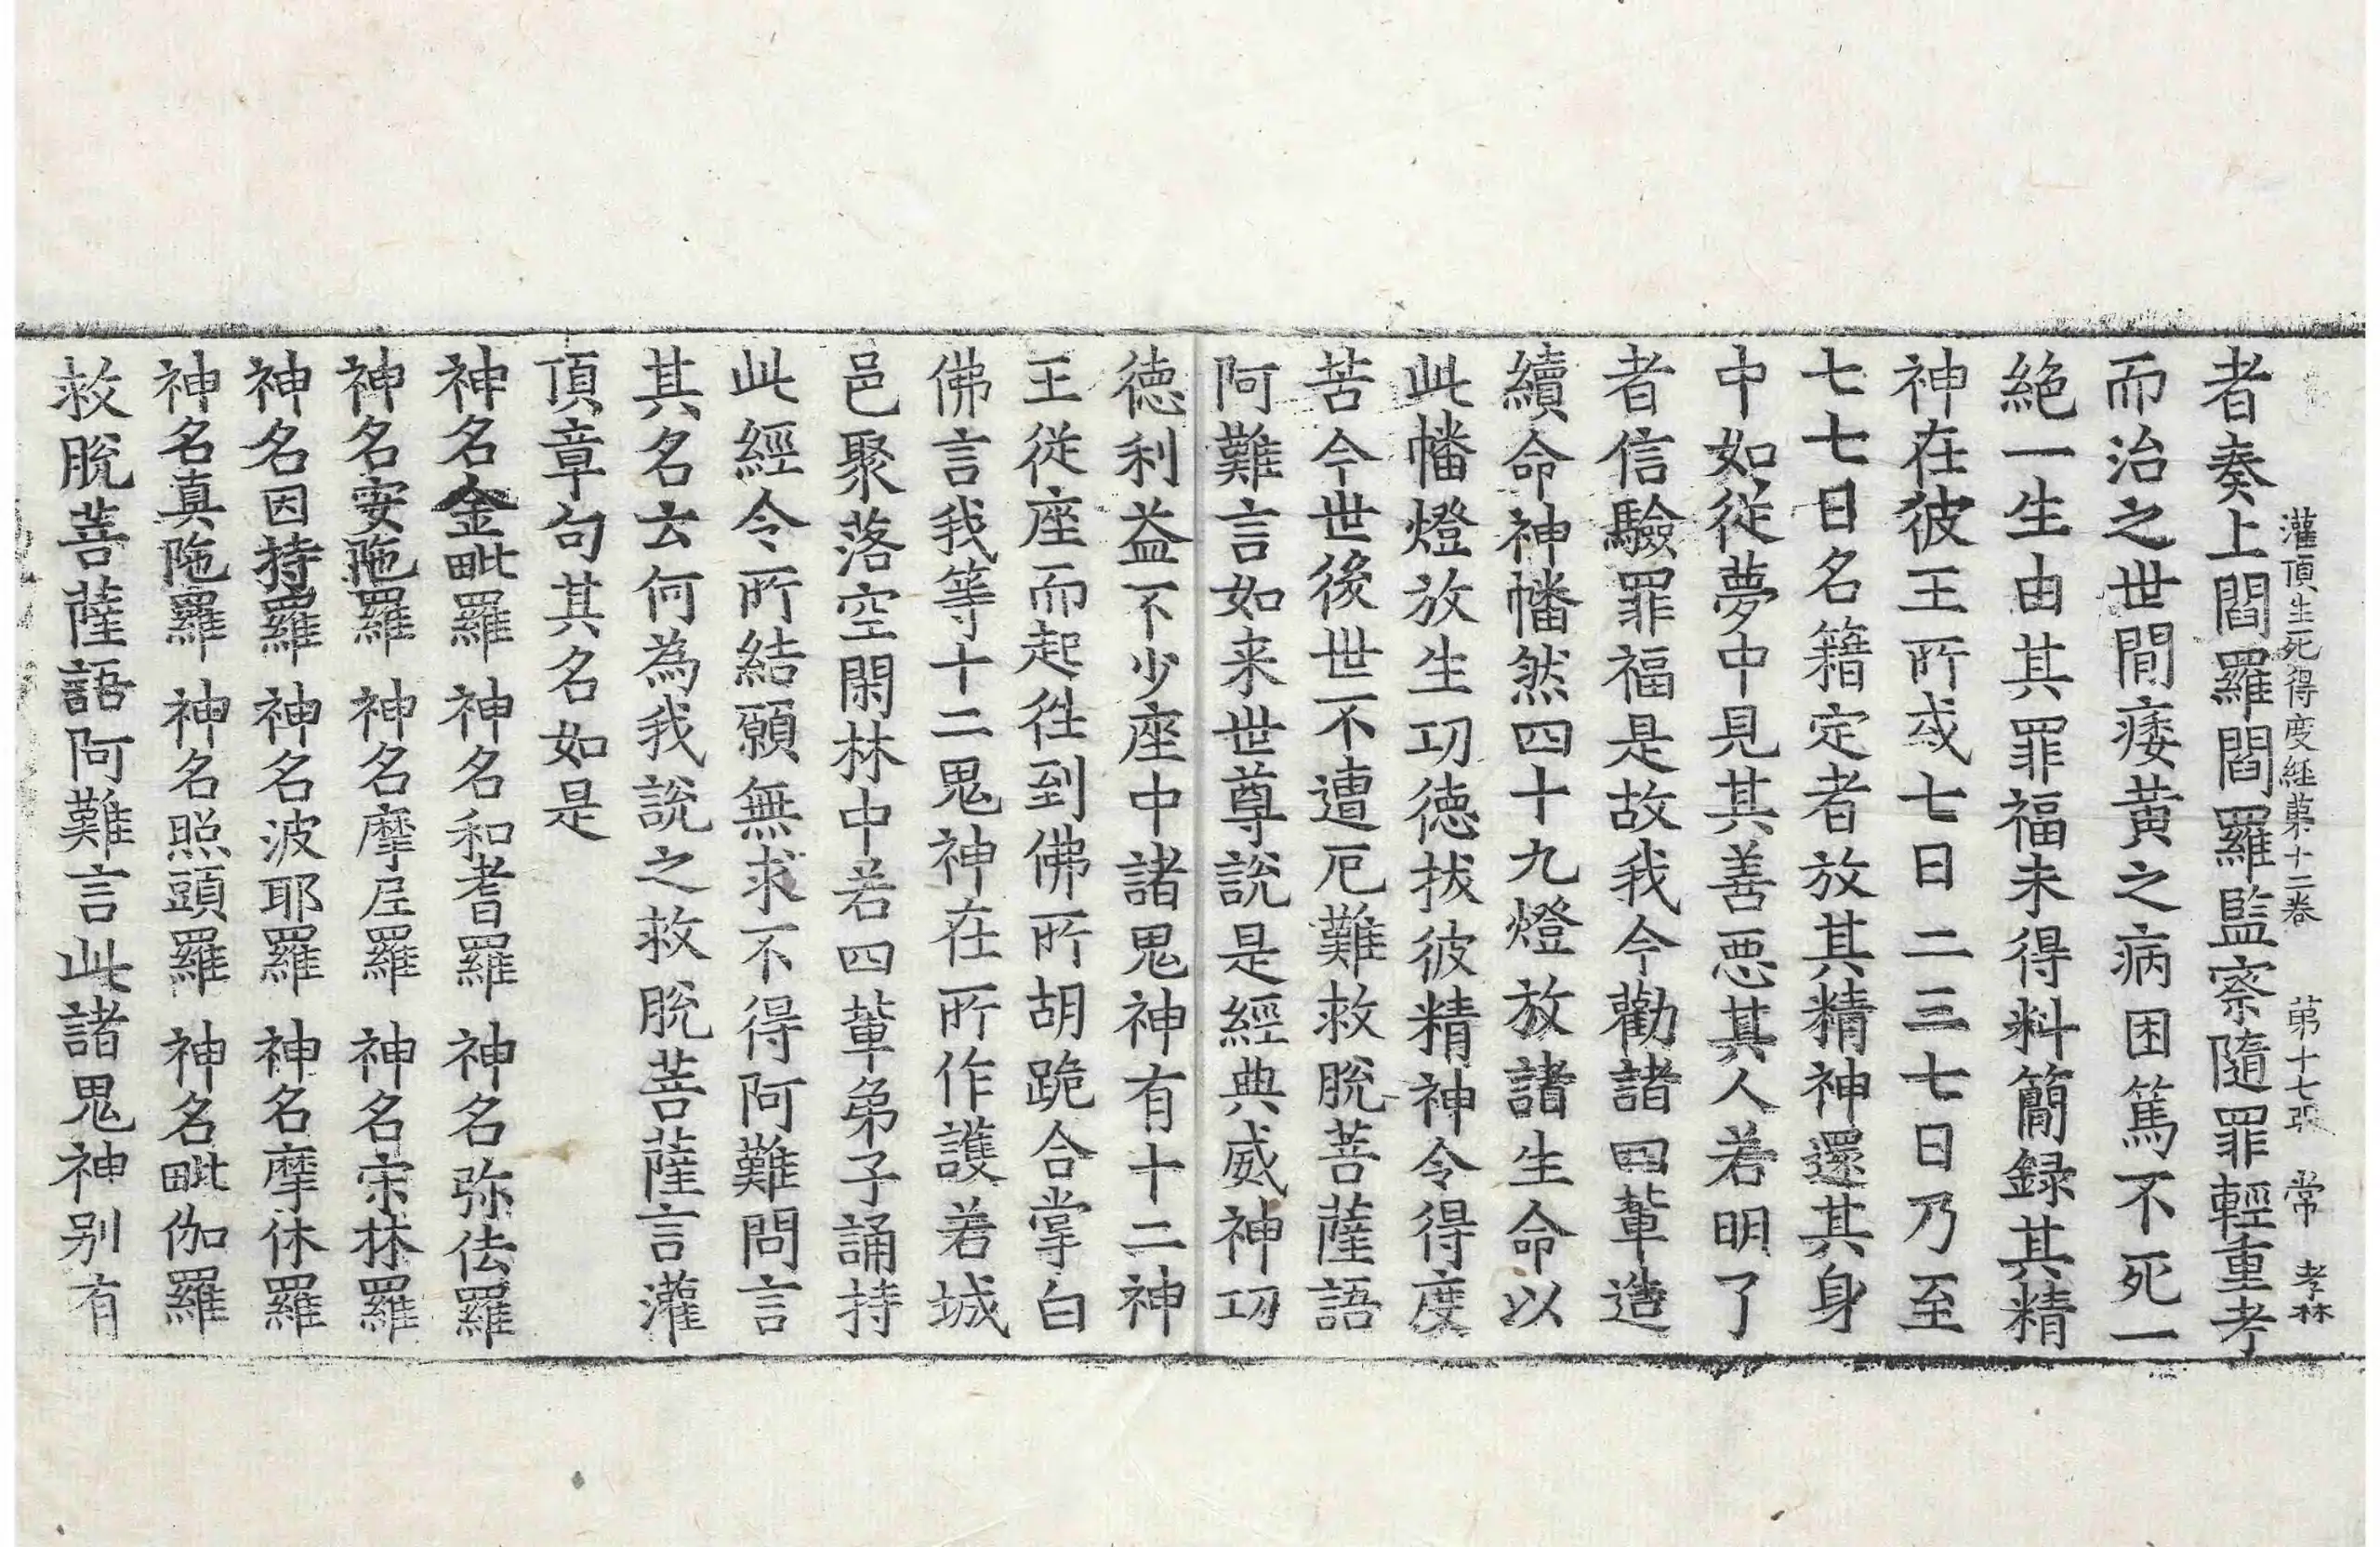 灌頂生死得度経苐十二巻 苐十七張 常 孝林
者奏上閻羅閻羅監察隨罪輕重考
而治之世間痿黄之病困篤不死一
絶一生由其罪福未得料簡録其精
神在彼王所或七日二三七日乃至
七七日名籍定者放其精神還其身
中如從夢中見其善悪其人若明了
者信驗罪福是故我今勸諸四軰造
續命神幡然四十九燈放諸生命以
此幡燈放生功德拔彼精神令得度
苦今世後世不遭厄難救脫菩薩語
阿難言如来世尊說是經典威神功
德利益不少座中諸鬼神有十二神
王從座而起徃到佛所胡跪合掌白
佛言我等十二鬼神在所作護若城
邑聚落空閑林中若四軰弟子誦持
此經令所結願無求不得阿難問言
其名云何為我說之救脫菩薩言灌
頂章句其名如是
神名金毗羅 神名和耆羅 神名弥佉羅
神名安陁羅 神名摩尼羅 神名宋林羅
神名因持羅 神名波耶羅 神名摩休羅
神名真陁羅 神名照頭羅 神名毗伽羅
救脫菩薩語阿難言此諸鬼神别有